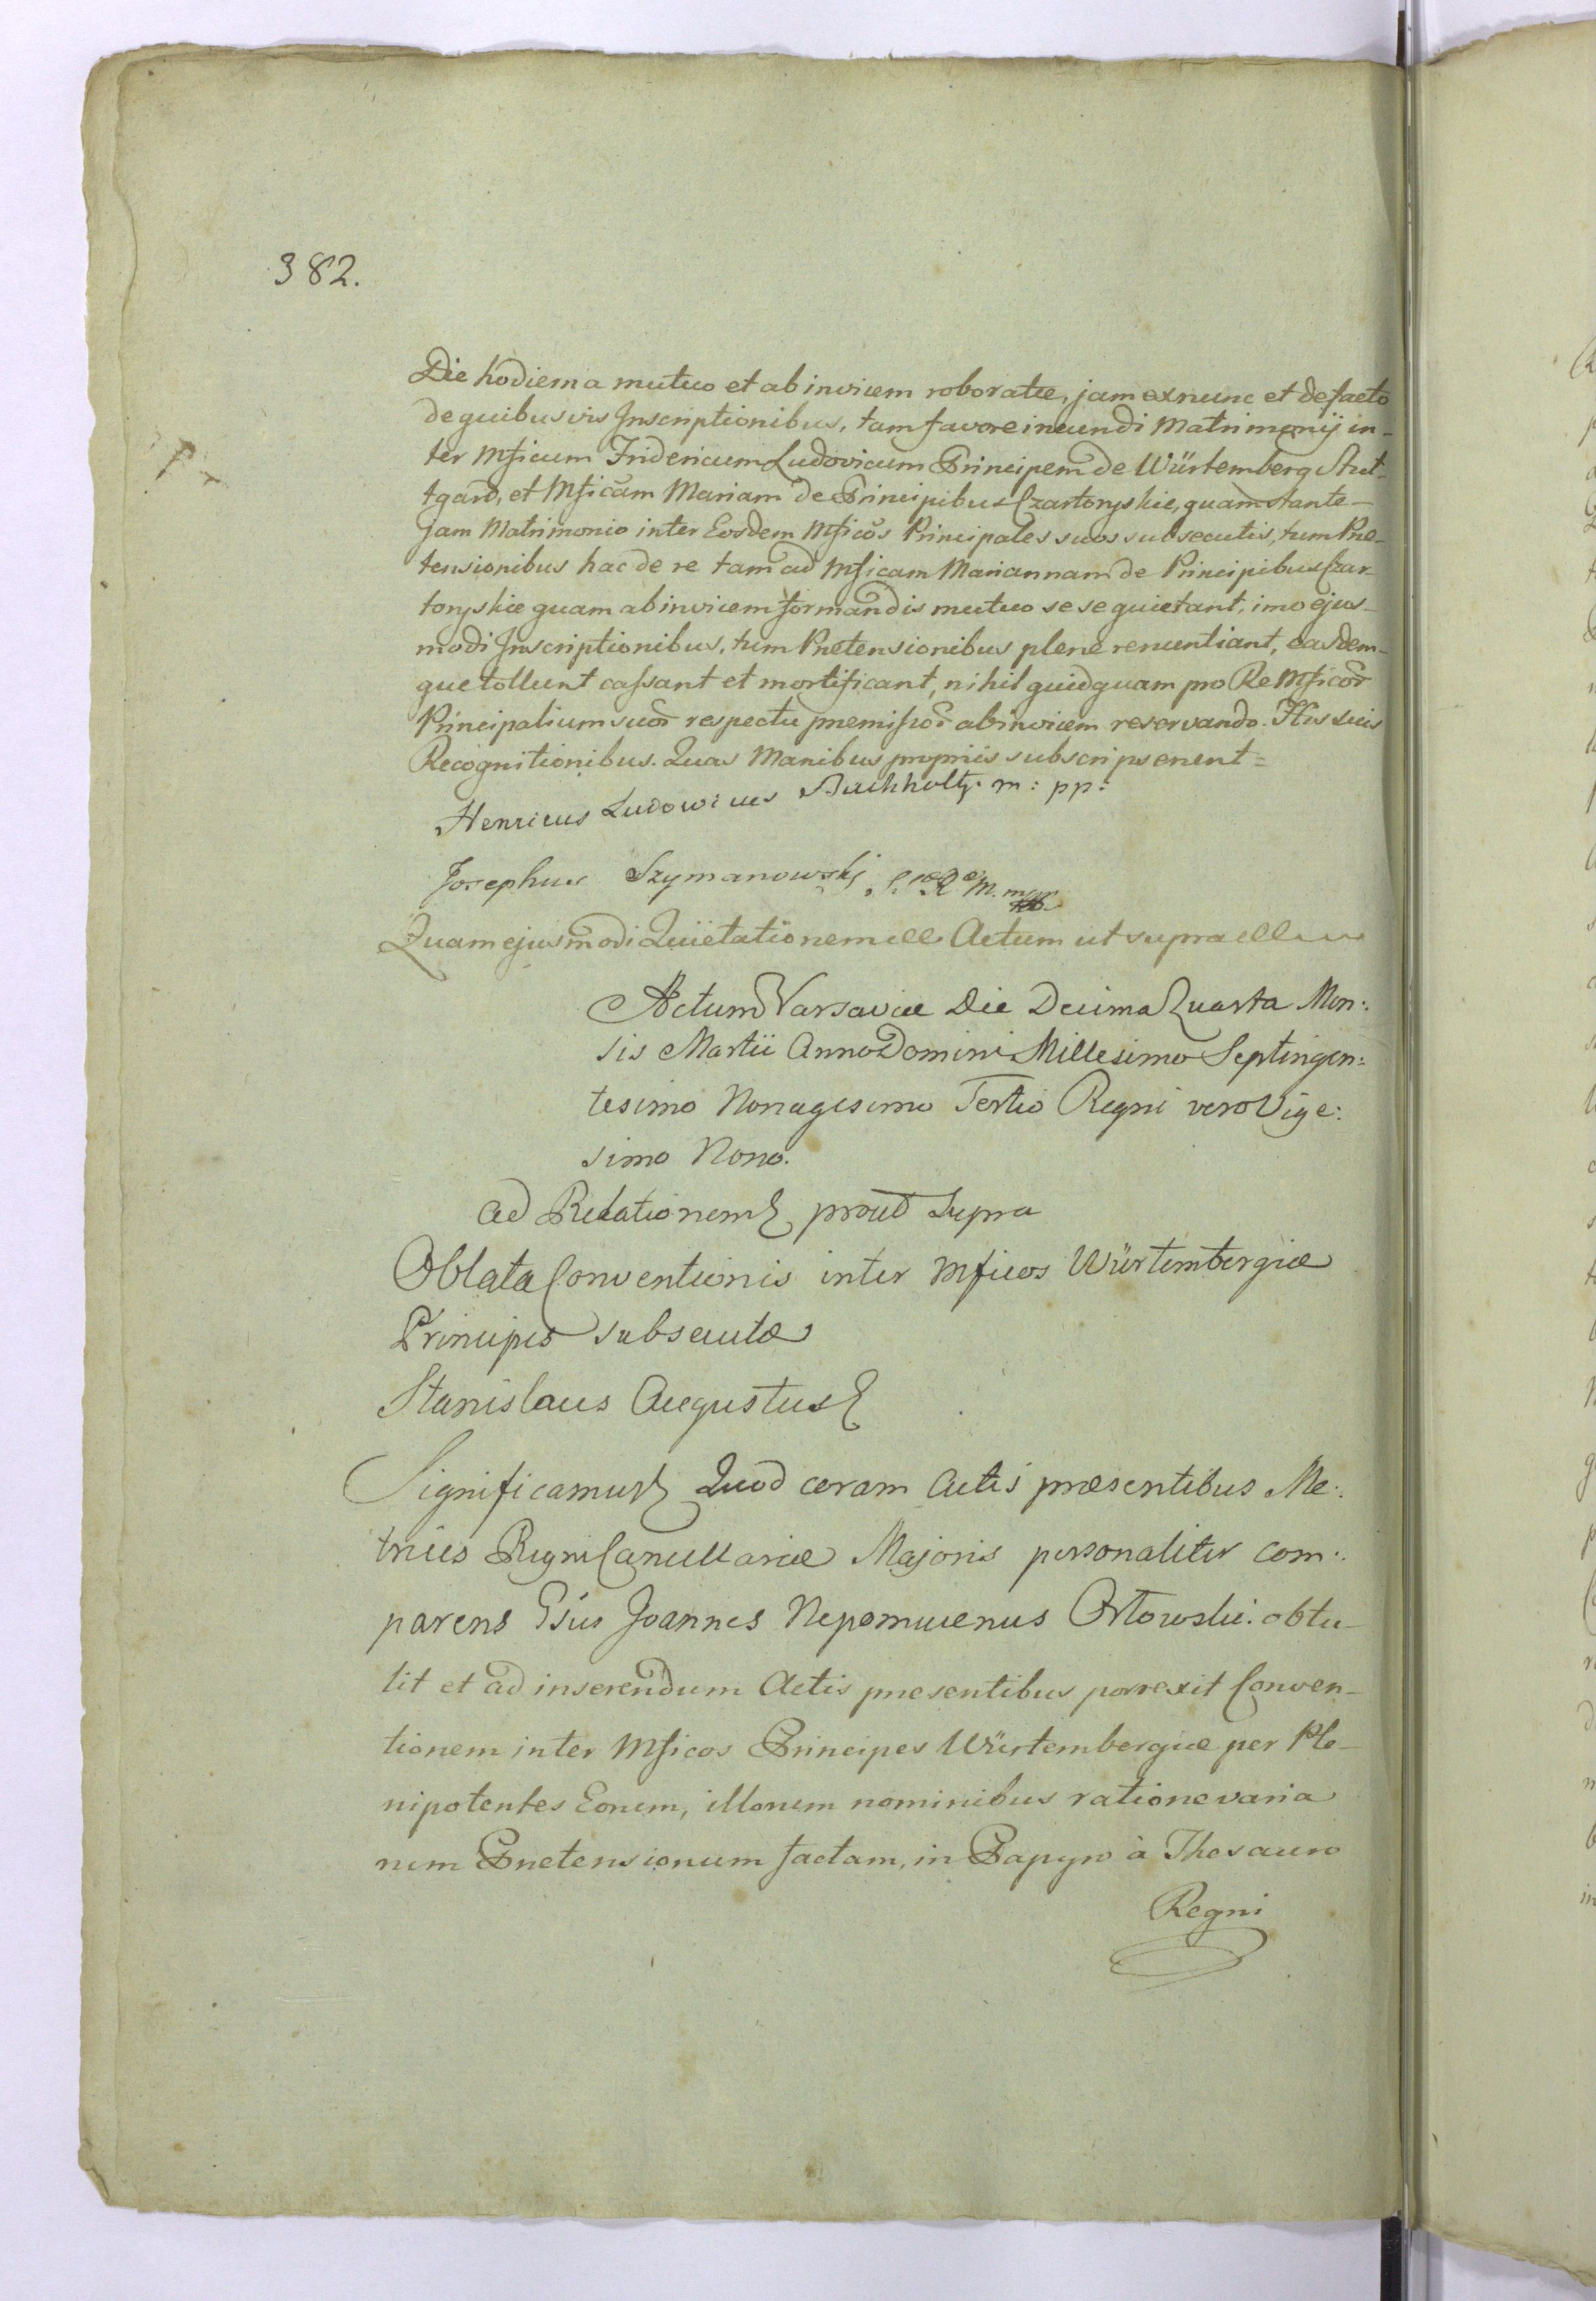 382.
Die hodierna mutuo et ab invicem roboratæ, jam ex nunc et de facto
de quibus vis Inscriptionibus, tam favore ineundi Matrimonij in-
ter Mficum Fridericum Ludovicum Principem de Würtemberg Stut-
tgard, et Mficam Mariam de Principibus Czartoryskie, quam stante
jam Matrimonio inter Eosdem Mficos Principales suos subsecutis, tum Præ-
tensionibus hac de re tam ad Mficam Mariannam de Principibus Czar-
toryskie quam ab invicem formandis mutuo se se quietant, imo ejus-
modi Inscriptionibus, tum Prætensionibus plene renuntiant, easdem-
que tollunt cassant et mortificant, nihil quidquam pro Re Mficor
Principalium suor respectu præmissor ab invicem reservando. His suis
Recognitionibus. Quas Manibus propriis subscripserunt =
Henricus Ludowicus Buchholtz. m: pp:
Josephus Szymanowski
Quam ejusmodi Quietationem Actum ut supra
Actum Varsaviæ Die Decima Quarta Men:
sis Martii Anno Domini Millesimo Septingen:
tesimo Nonagesimo Tertio Regni vero Vige:
simo Nono.
ad Relationem prout Supra
Oblata Conventionis inter Mficos Würtembergiæ
Principes subsecutæ
Stanislaus Augustus
Significamus Quod coram Actis præsentibus Me:
trices Regni Cancellariæ Majoris personaliter com:
parens Gsus Joannes Nepomucenus Ortowski. obtu-
lit et ad inserendum Actis præsentibus porrexit Conven-
tionem inter Mficos Principes Würtembergiæ per Ple-
nipotentes Eorum, illorum nominibus ratione varia
rum Prætensionum factam, in Papyro à Thesauro
Regni